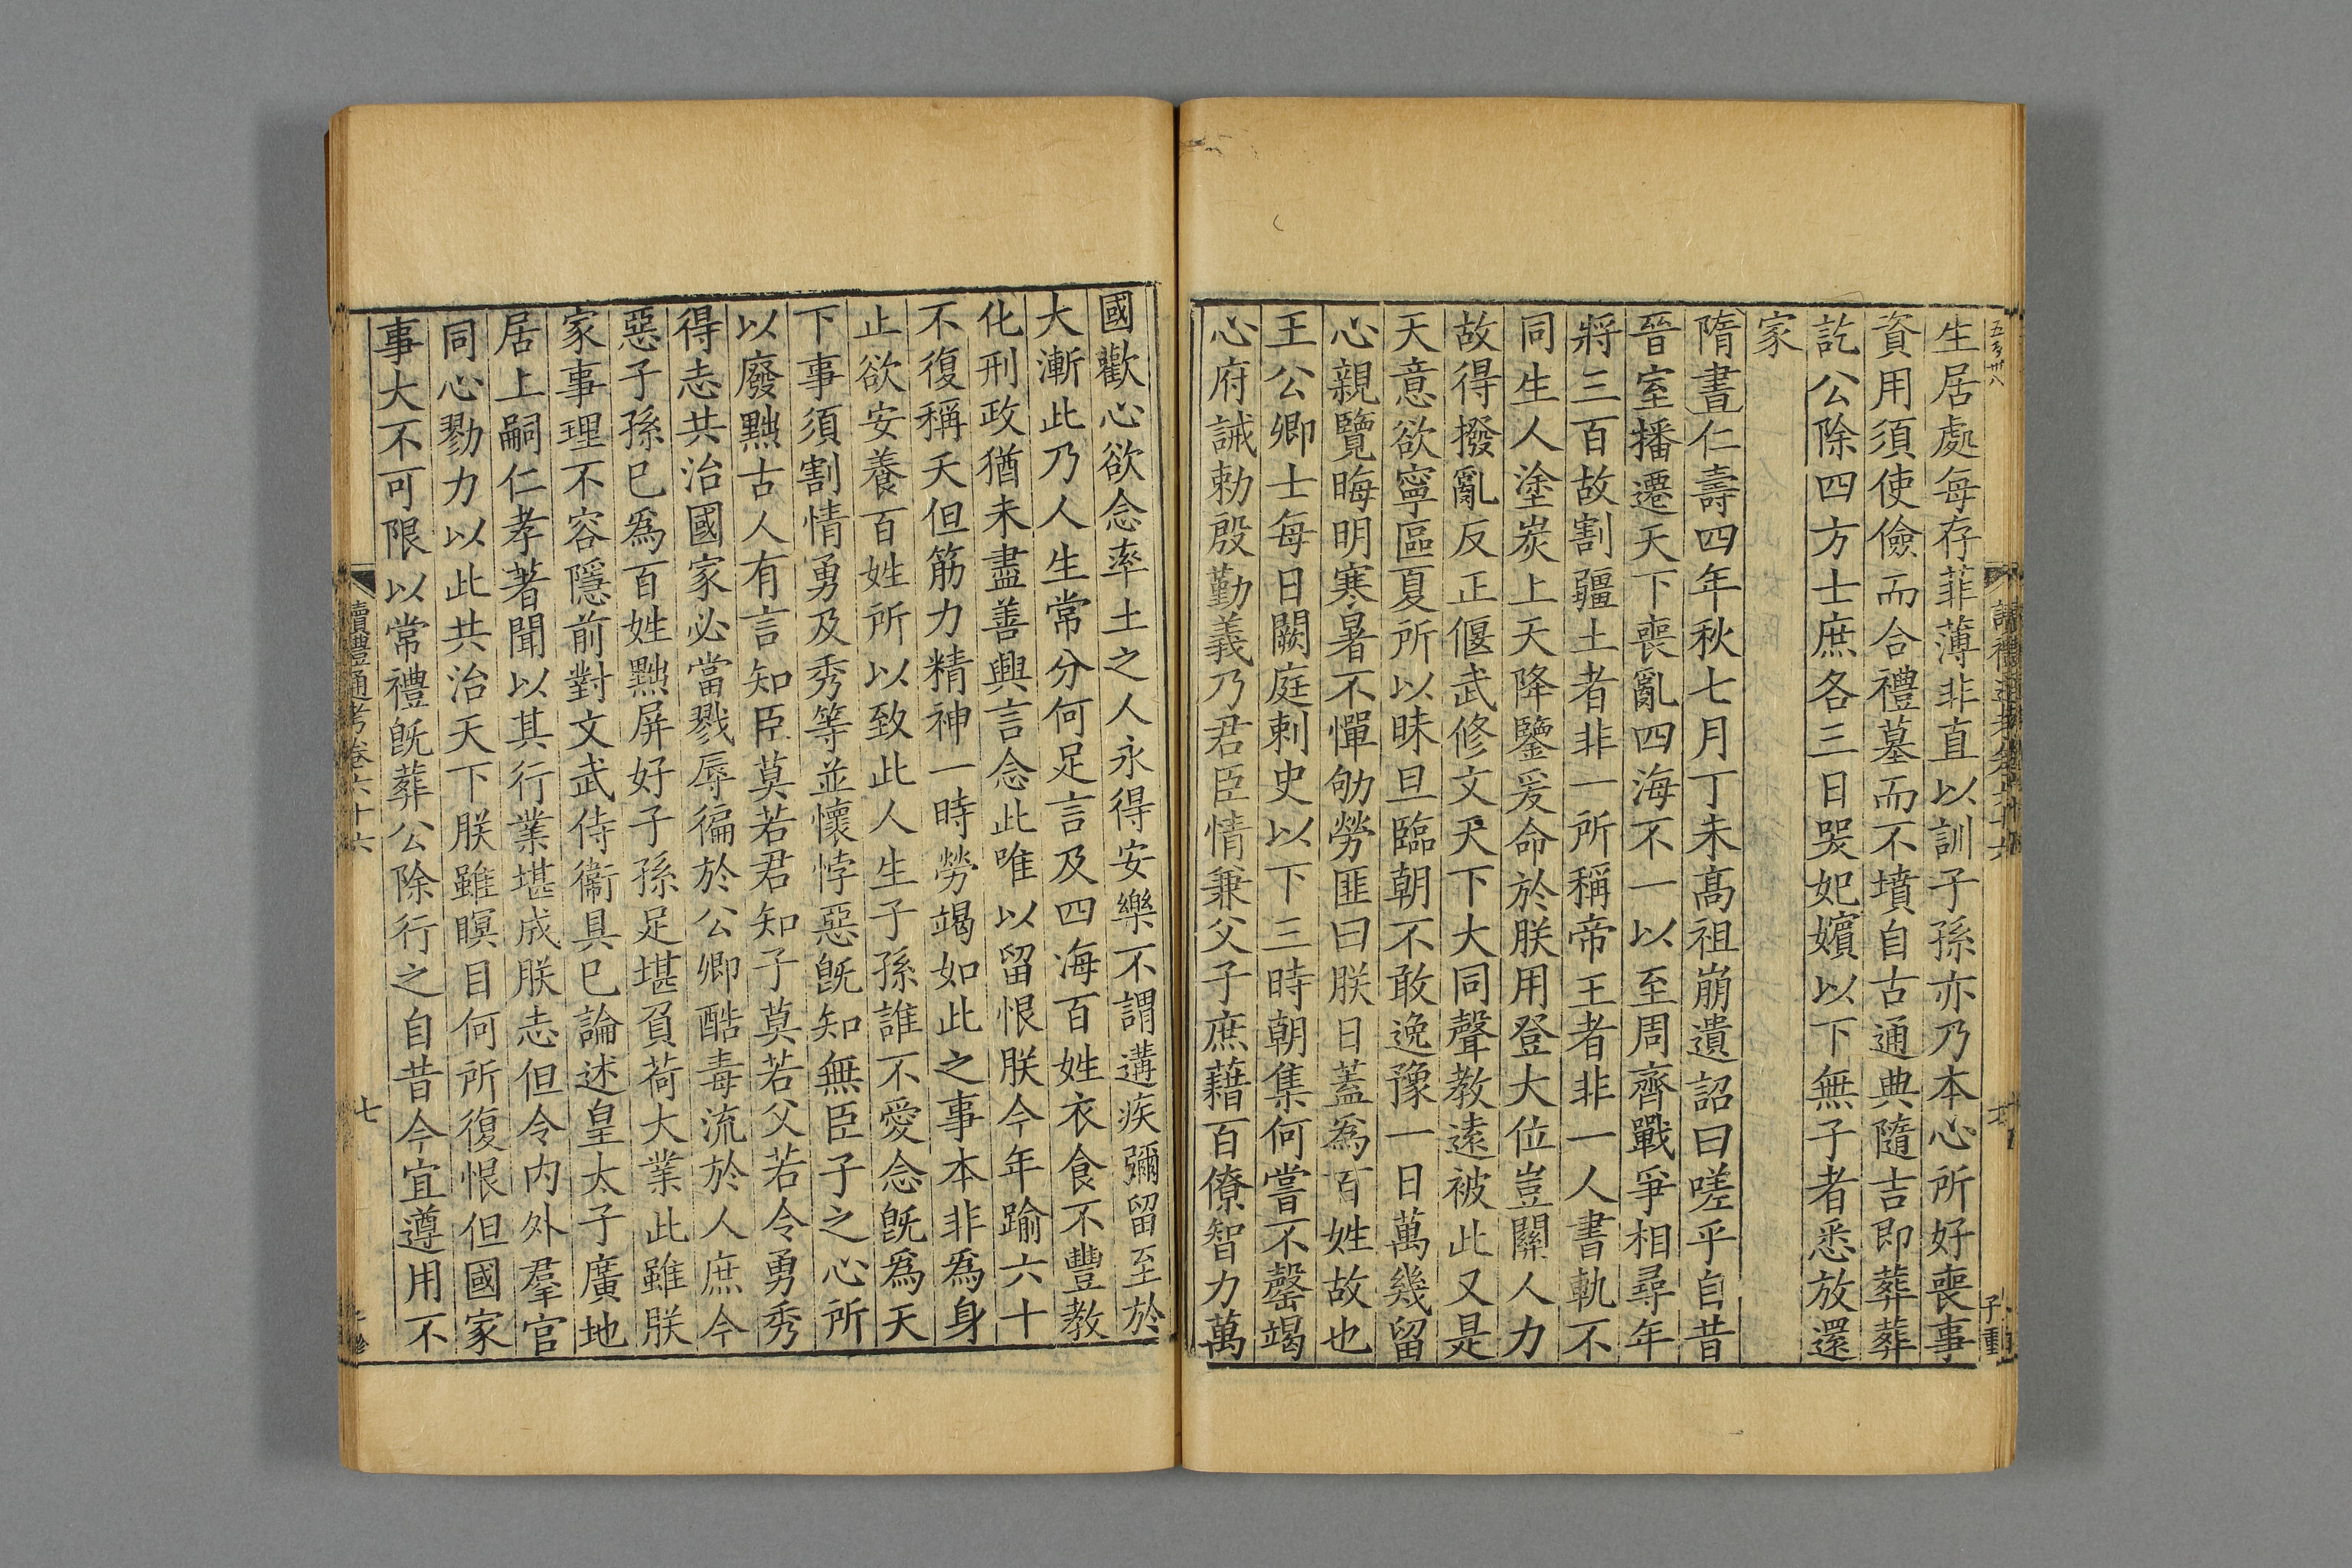 生居處每存菲薄非直以訓子孫亦乃本心所好喪事
資用須使儉而合禮墓而不墳自古通典隨吉即葬葬
訖公除四方士庶各三日哭妃嬪以下無子者悉放還
家
隋書仁壽四年秋七月丁未高祖崩遺詔曰嗟乎自昔
晉室播遷天下喪亂四海不一以至周齊戰爭相尋年
將三百故割疆土者非一所稱帝王者非一人書軌不
同生人塗炭上天降鑒爰命於朕用登大位豈關人力
故得撥亂反正偃武修文天下大同聲教遠被此又是
天意欲寧區夏所以昧旦臨朝不敢逸豫一日萬幾留
心親覽晦明寒暑不憚劬勞匪曰朕日蓋為百姓故也
王公卿士每日闕庭刺史以下三時朝集何嘗不罄竭
心府誡勅殷勤義乃君臣情兼父子庶藉百僚智力萬
國歡心欲念率土之人永得安樂不謂遘疾彌留至於
大漸此乃人生常分何足言及四海百姓衣食不豐教
化刑政猶未盡善興言念此唯以留恨朕今年踰六十
不復稱夭但筋力精神一時勞竭如此之事本非為身
止欲安養百姓所以致此人生子孫誰不愛念既為天
下事須割情勇及秀等並懷悖惡既知無臣子之心所
以廢黜古人有言知臣莫若君知子莫若父若令勇秀
得志共治國家必當戮辱徧於公卿酷毒流於人庶今
惡子孫已為百姓黜屏好子孫足堪負荷大業此雖朕
家事理不容隱前對文武侍衞具已論述皇太子廣地
居上嗣仁孝著聞以其行業堪成朕志但令内外羣官
同心勠力以此共治天下朕雖瞑目何所復恨但國家
事大不可限以常禮既葬公除行之自昔今宜遵用不
讀禮通考卷六十六
七